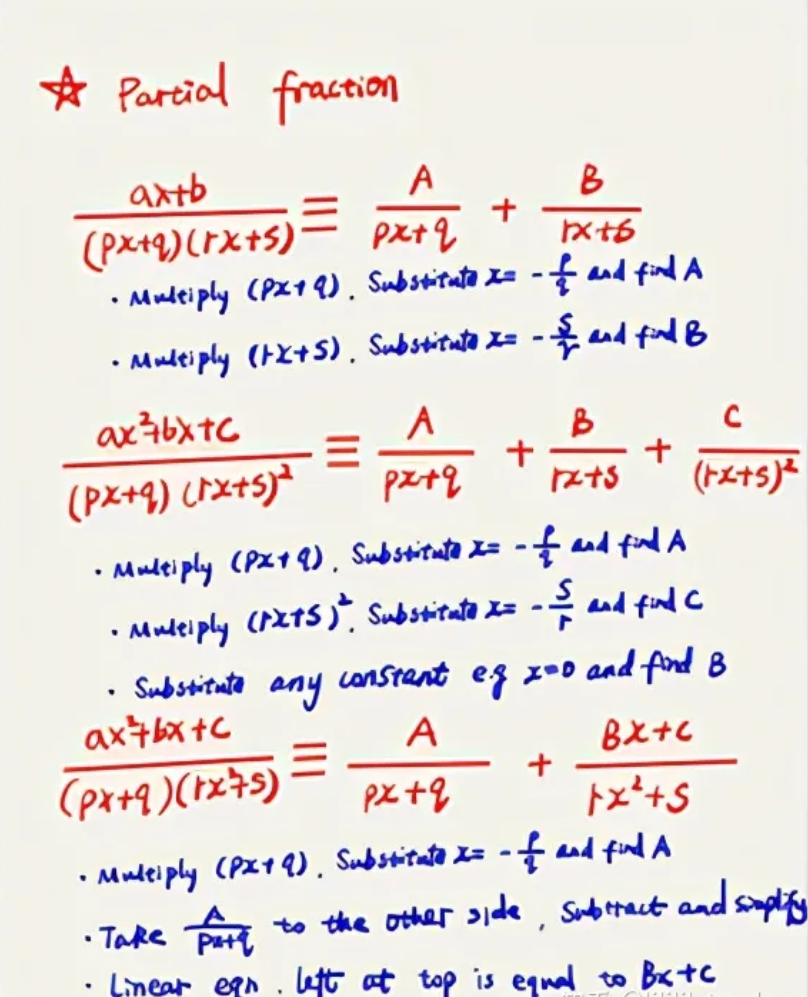 ☆ Partial fraction
(ax+b)/((px+q)(rx+s)) ≡ A/(px+q) + B/(rx+s)
· Multiply (px+q). Substitute x= -p/q and find A
· Multiply (rx+s). Substitute x= -s/r and find B
(ax²+bx+c)/((px+q)(rx+s)²) ≡ A/(px+q) + B/(rx+s) + C/(rx+s)²
· Multiply (px+q). Substitute x= -p/q and find A
· Multiply (rx+s)². Substitute x= -s/r and find C
· Substitute any constant e.g x=0 and find B
(ax²+bx+c)/((px+q)(rx²+s)) ≡ A/(px+q) + (Bx+C)/(rx²+s)
· Multiply (px+q). Substitute x= -p/q and find A
· Take A/(px+q) to the other side, Subtract and simplify
· Linear eqn. left at top is equal to Bx+C